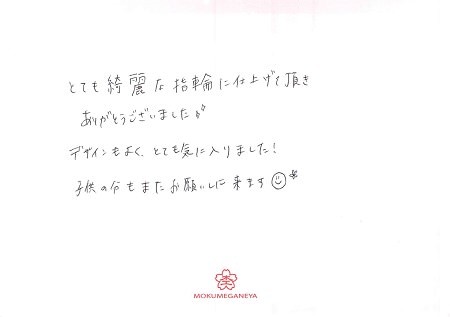 とても綺麗な指輪に仕上げて頂き
ありがとうございました
デザインもよく、とても気に入りました!
子供の分もまたお願いしに来ます
MOKUMEGANEYA